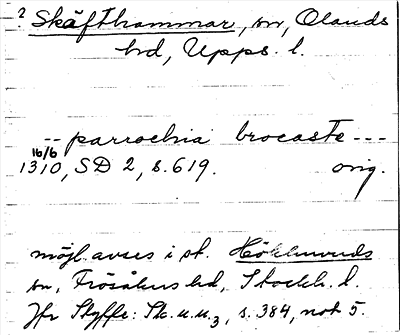 ? Skäfthammar, sn, Olands
hd, Upps. l.
-- parrochia brocaste ---
16/6
1310, SD 2, s. 619. orig.
möjl. avses i st. Hökhuvuds
sn, Frösåkers hd, Stockh. l.
Jfr Styffe: Sk.u.u.3, s. 384, not 5.